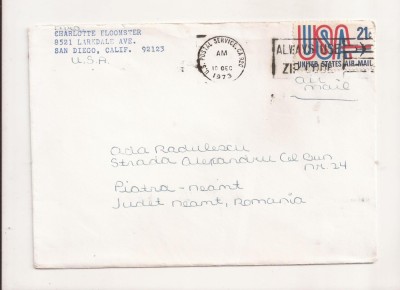 CHARLOTTE FLOORSTER
8521 LARKDALE AVE.
SAN DIEGO, CALIF. 92123
U.S.A.
U.S. POSTAL SERVICE, CA 920
AM
10 DEC
1973
ALWAYS USE
ZIP CODE
USA 21c
UNITED STATES AIR MAIL
air
mail
Ada Radulescu
Strada Alexandru Cel Bun
NR. 24
Piatra - Neamt
Judet Neamt, Romania